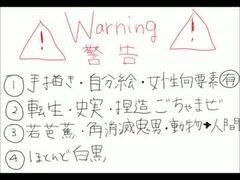 Warning
警告
① 手描き・自分絵・女性向要素㊒
② 転生・史実・捏造ごちゃまぜ
③ 若芭蕉・角消滅鬼男・動物→人間
④ ほとんど白黒